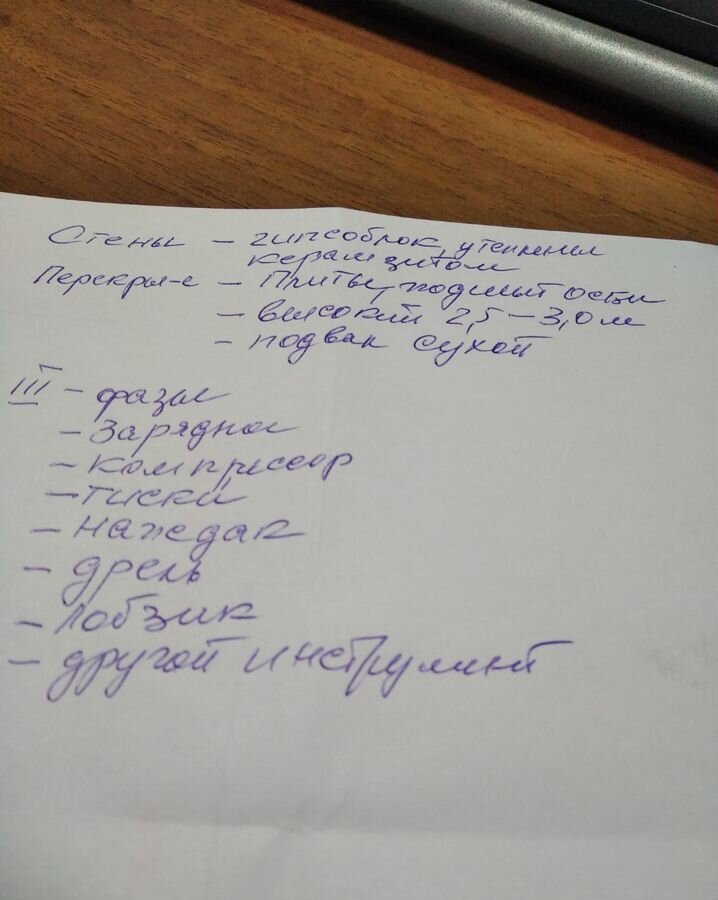 Стены – гипсоблок, утепления
керамзитом
Перекры-е – Плиты,
– высокий 2,5 – 3,0 м
– подвал сухой
III – фазы
– зарядное
– компрессор
– тиски
– наждак
– дрель
– лобзик
– другой инструмент